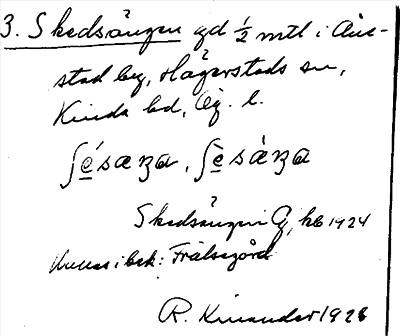 3. Skedsängen gd ½ mtl i Åns-
stad by, Hägerstads sn,
Kinda hd, Ög. l.
ʃe̲´sæŋa, ʃe̲sæ̀ŋa
Skedsängen Ög, kb 1924
i bok: Frälsegård
R. Kinander 1926